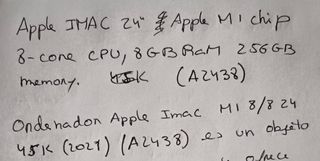 Apple IMAC 24" Apple M1 chip
8-core CPU, 8GB RAM 256GB
memory. 45K (A2438)
Ordenador Apple Imac M1 8/8 24
45K (2021) (A2438) es un objeto
ofrece